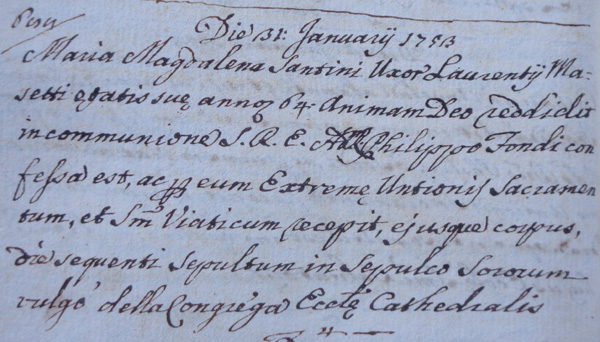 Die 31: Januarij 1753
Maria Magdalena Santini Uxor Laurentij Ma-
setti ętatis suę annoȝ 64: Animam Deo reddidit
in communione S. R. E. Philippo Fondi con
fessa est, ac eum Extremę Untionis Sacramen
tum, et Sm̃ Viaticum recepit, ejusque corpus,
die sequenti sepultum in Sepulco Sororum
vulgo' della Congrega Ecclę Cathedralis